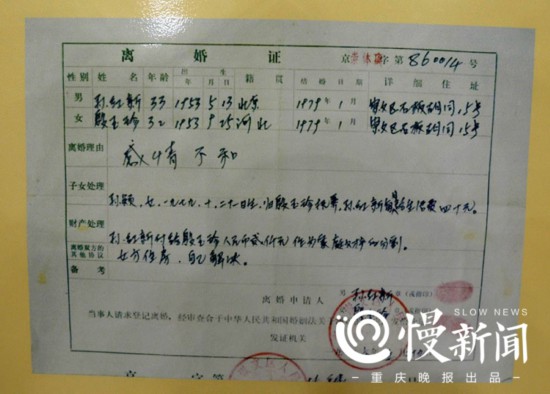 离婚证
京 字第860014号
性别 姓名 年龄 出生年月日 籍贯 结婚日期 详细住址
男 孙红新 33 1953 5 13 北京 1979年1月 石板胡同15号
女 殷玉玲 32 1953 9 25 河北 1979年1月 石板胡同15号
离婚理由 感情不和
子女处理 孙颖,女,一九七九、十、二十一日生,归殷玉玲抚养,孙红新 生活费四十元。
财产处理 孙红新付给殷玉玲人民币贰仟元作为家庭财产的分割。
离婚双方的其他协议 女方住房,自己解决。
备考
离婚申请人 男 孙红新
女 (或指印)
当事人请求登记离婚,经审查合于中华人民共和国婚姻法关
发证机关
京 字第
慢新闻
SLOW NEWS
重庆晚报出品